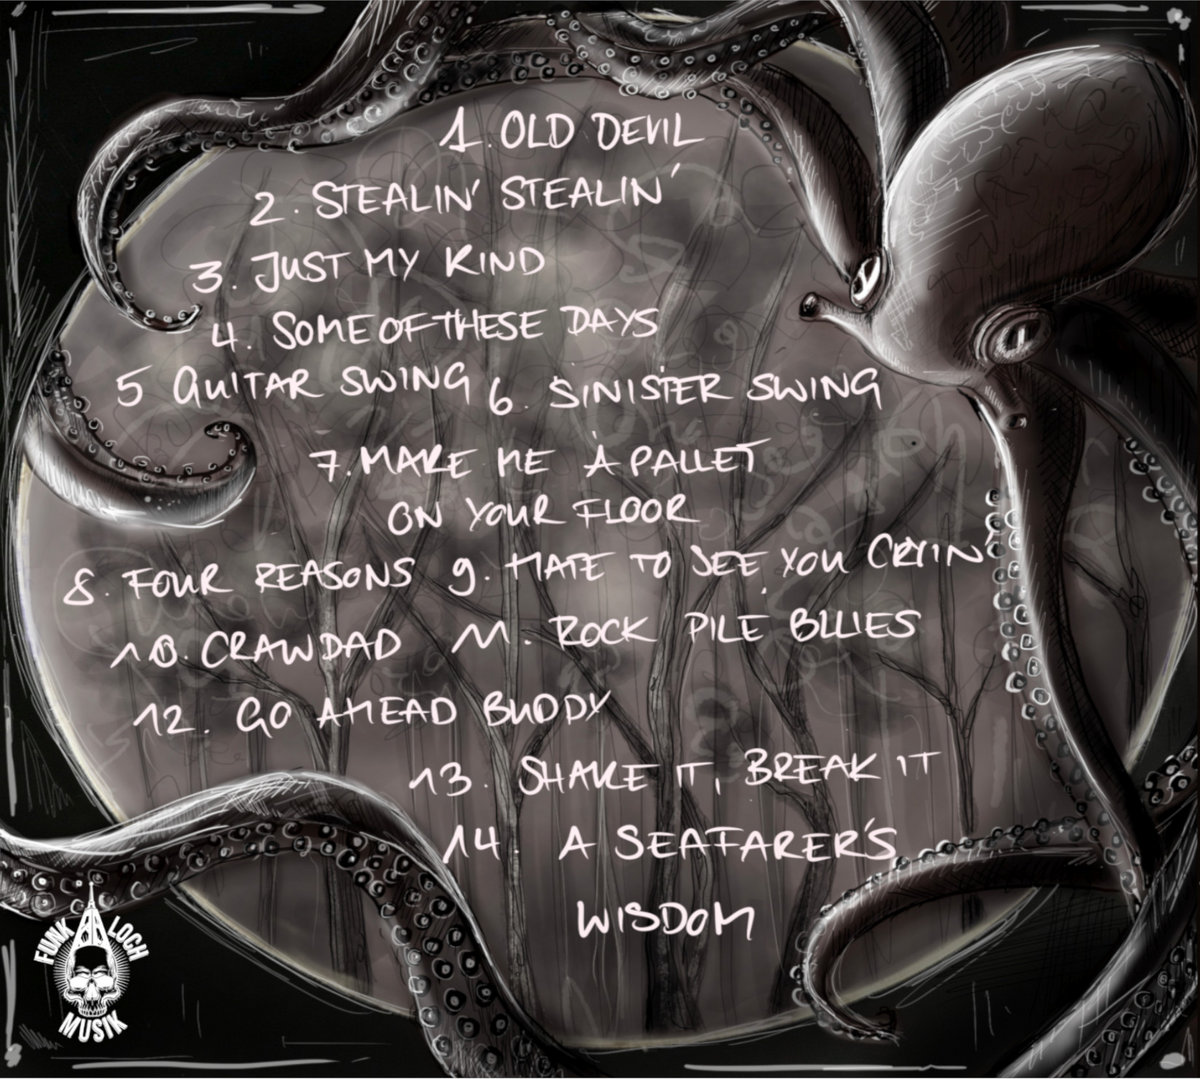 1. OLD DEVIL
2. STEALIN' STEALIN'
3. JUST MY KIND
4. SOME OF THESE DAYS
5 GUITAR SWING 6. SINISTER SWING
7. MAKE ME A PALLET
ON YOUR FLOOR
8. FOUR REASONS 9. HATE TO SEE YOU CRYIN'
10. CRAWDAD 11. ROCK PILE BLUES
12. GO AHEAD BUDDY
13. SHAKE IT, BREAK IT
14. A SEAFARER'S
WISDOM
FUNK LOCH
MUSIK